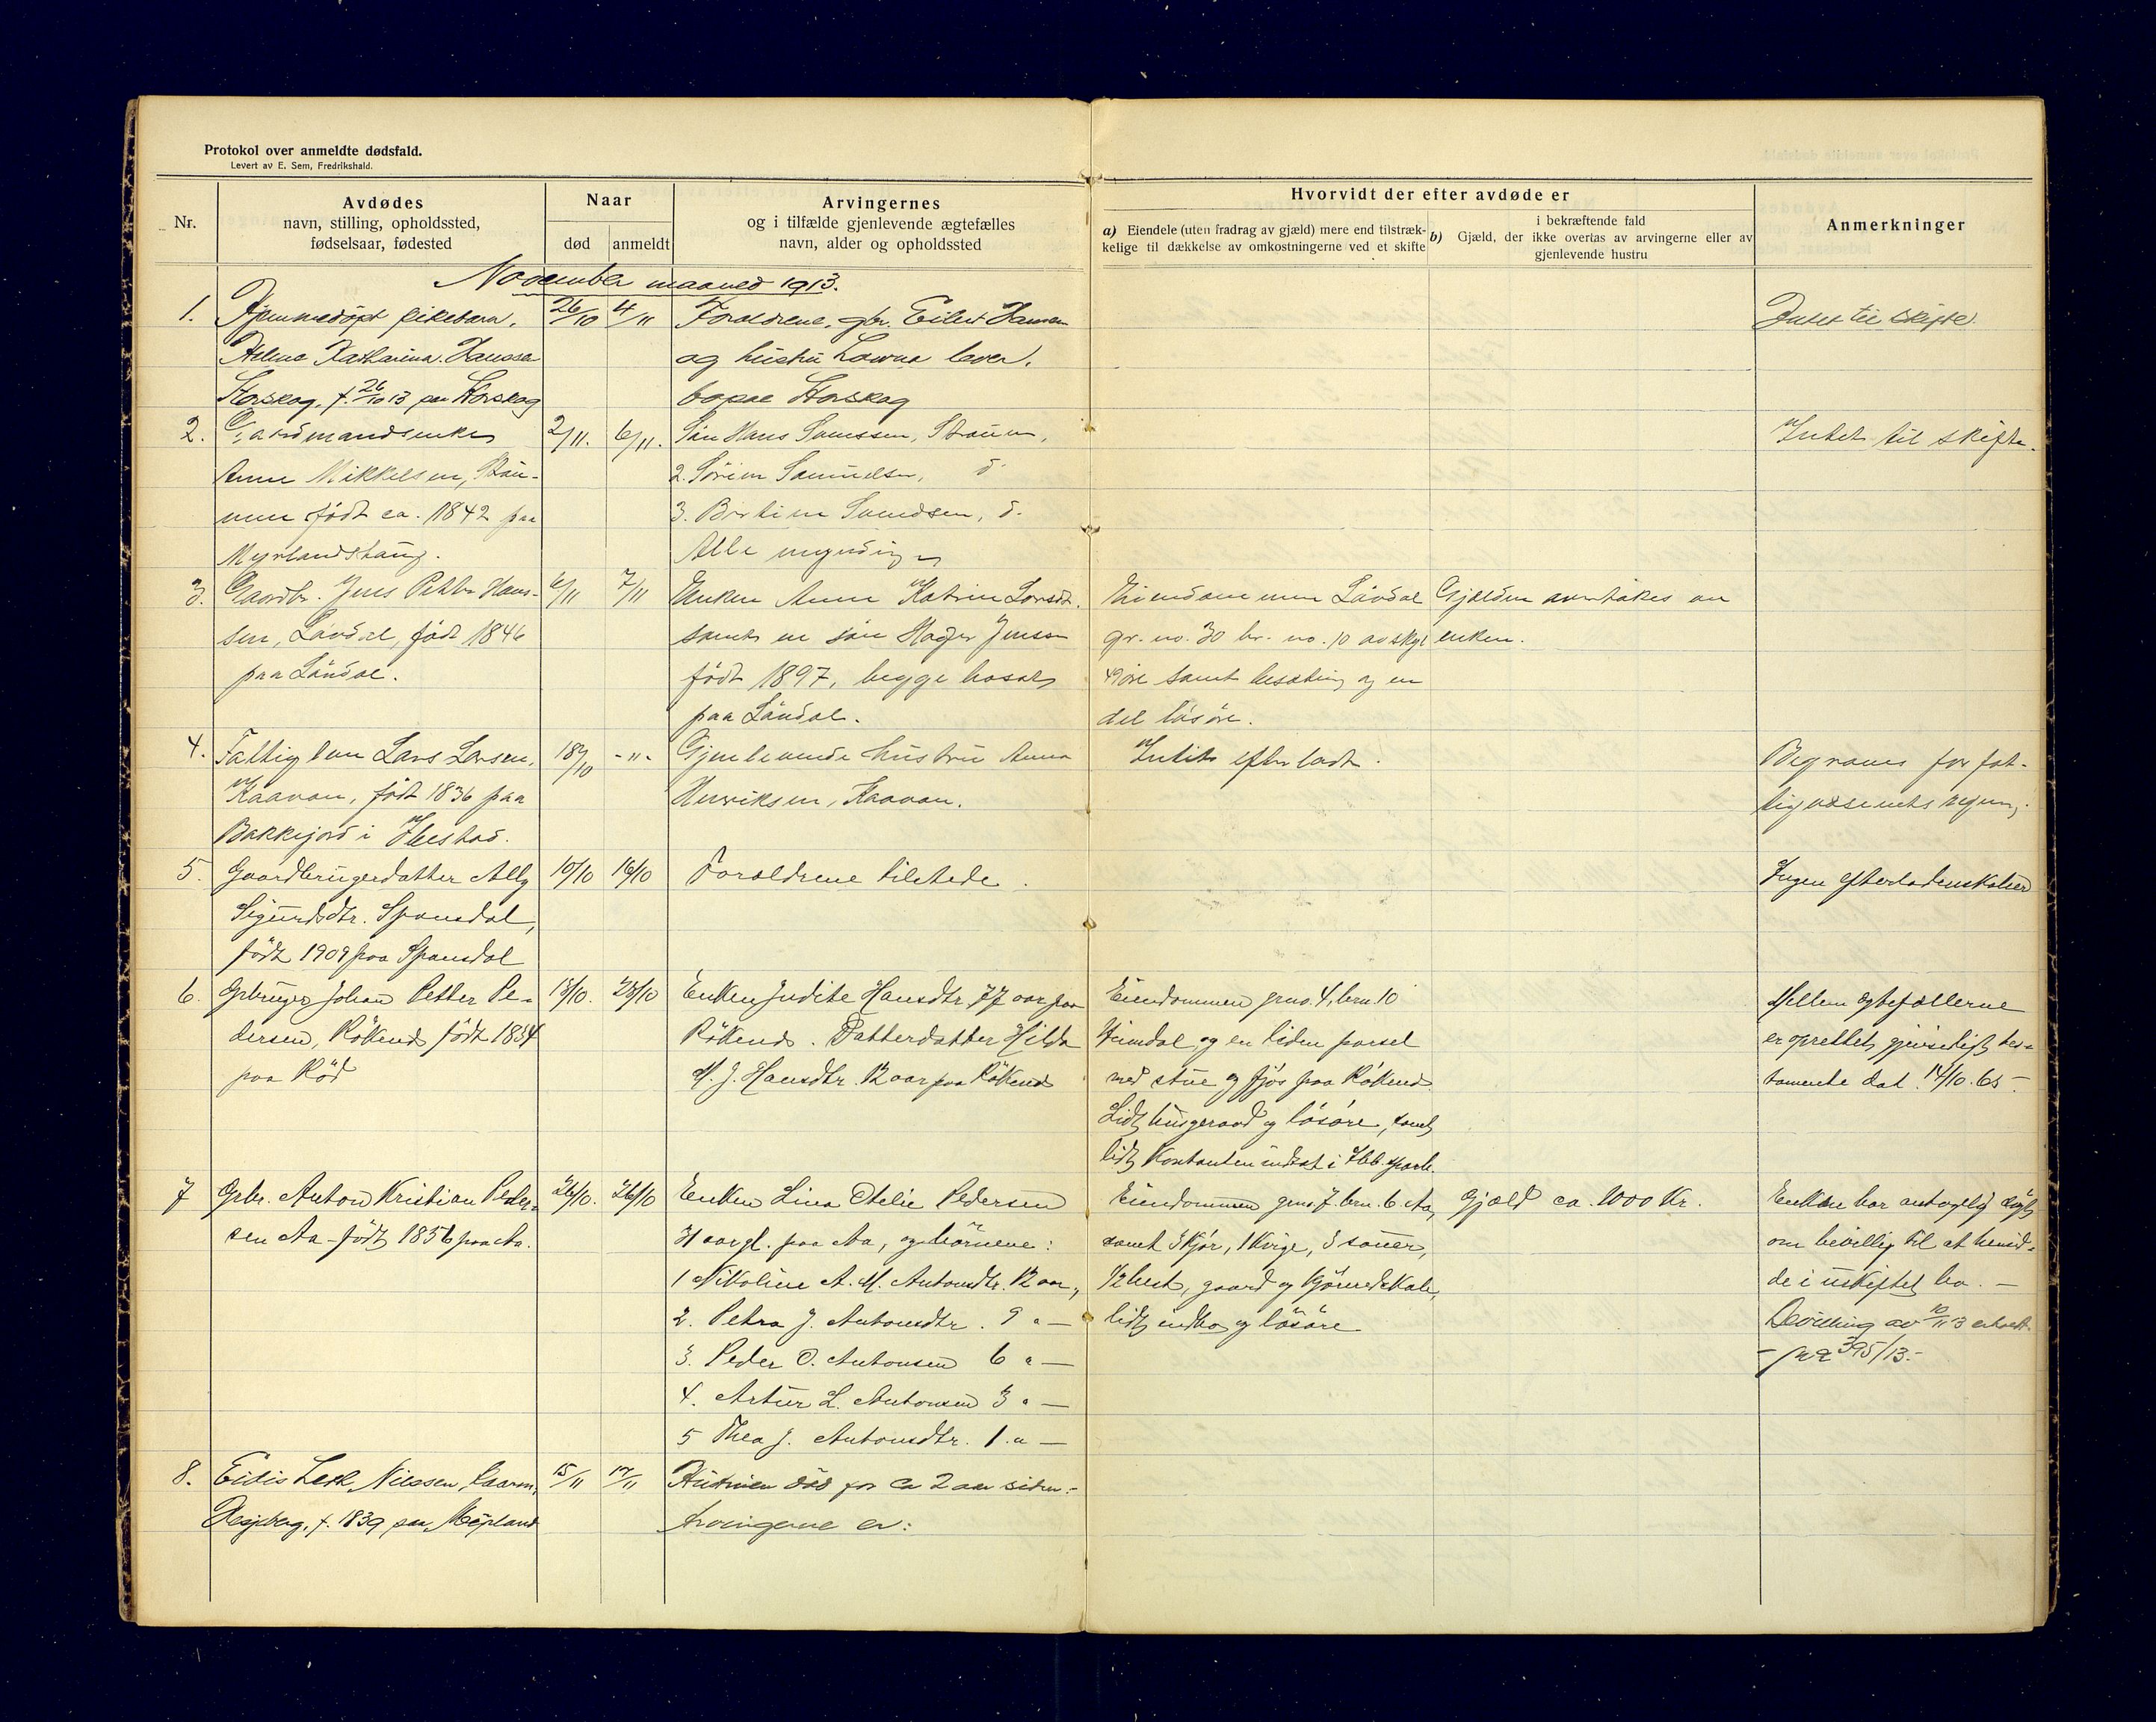 Protokol over anmeldte dødsfald.
Levert av E. Sem, Fredrikshald.
Nr.
Avdødes
navn, stilling, opholdssted,
fødselsaar, fødested
Naar
død
anmeldt
Arvingernes
og i tilfælde gjenlevende ægtefælles
navn, alder og opholdssted
Hvorvidt der efter avdøde er
a) Eiendele (uten fradrag av gjæld) mere end tilstræk-
kelige til dækkelse av omkostningerne ved et skifte
b) i bekræftende fald
Gjæld, der ikke overtas av arvingerne eller av
gjenlevende hustru
Anmerkninger
November maaned 1913.
1. Hjemmedøpt pikebarn,
Helene Katharina Hanssen
Storskog, f. 26/10 13 paa Storskog
26/10
4/11
Forældrene, gbr. Eilert Hansen
og hustru Lovna lever,
bopæl Storskog
Intet til skifte.
2. Gaardmandsenke
Anne Mikkelsen, Strau-
men født ca. 1842 paa
Myrlandshaug.
2/11.
6/11.
Søn Hans
2. Sørine Samuelsen, d.
3. d.
Alle myndige
Intet til skifte.
3. Gaardbr. Jens Petter Hans-
sen, Løvdal, født 1846
paa Løvdal.
6/11
7/11
Enken Anne Katrine Larsdt.
samt en søn Hagen Jenssen
født 1897, begge bosat
paa Løvdal.
Eiendommen Løvdal
gr. no. 30 br. no. 10 av skyl
49 øre samt besætning og en
del løsøre.
Gjælden overtakes av
enken.
4. Fattiglem Lars Larsen,
Kaavan, født 1836 paa
Bakkejord i Ibestad.
18/10
-"-
Gjenlevende hustru Anna
Henriksen, Kaavan.
Intet efterladt.
Begraves for fat-
tigvæsenets regning.
5. Gaardbrugerdatter Ally
Sigurdsdtr. Spansdal,
født 1909 paa Spansdal
10/10
16/10
Forældrene tilstede.
Ingen efterladenskaber
6. Gbruger Johan Petter Pe-
dersen, Røkenes født 1834
paa Rød
18/10.
23/10
Enken Judite Hansdtr. 77 aar paa
Røkenes. Datterdatter Hilda
M. J. Hansdtr. 12 aar paa Røkenes
Eiendommen grno. 4, brn. 10
og en liden parsel
med stue og fjøs paa Røkenes
Lidt husgeraad og løsøre, samt
lidt kontanter indsat i Ibb. sparb.
Mellem egtefællerne
er oprettet gjensidigt tes-
tamente dat. 14/10. 65
7 Gbr. Anton Kristian Peder-
sen Aa født 1856 paa Aa.
26/10.
26/10
Enken Lina Otelie Pedersen
31 aar gl. paa Aa, og børnene:
1 Nikoline A. M. Antonsdtr. 12 aar,
2. Petra J. Antonsdtr. 9 " —
3. Peder O. Antonsen 6 " —
4. Artur L. Antonsen 3 " —
5 Thea J. Antonsdtr. 1 " —
Eiendommen grno. 7 brn. 6 Aa,
samt 3 kjør, 1 kvige, 3 sauer,
1/2 hest, gaard og kjøreredskab,
lidt indbo og løsøre
Gjæld ca. 1000 Kr.
Enken har antagelig søgt
om bevilling til at hensid-
de i uskiftet bo. —
Bevilling av 10/11 13
395/13.-
8. Eidis Leth Nilssen, kaarm.
Hesjeberg, f. 1839 paa Mørland
15/11
17/11
Hustruen død for ca 2 aar siden.-
Arvingerne er: